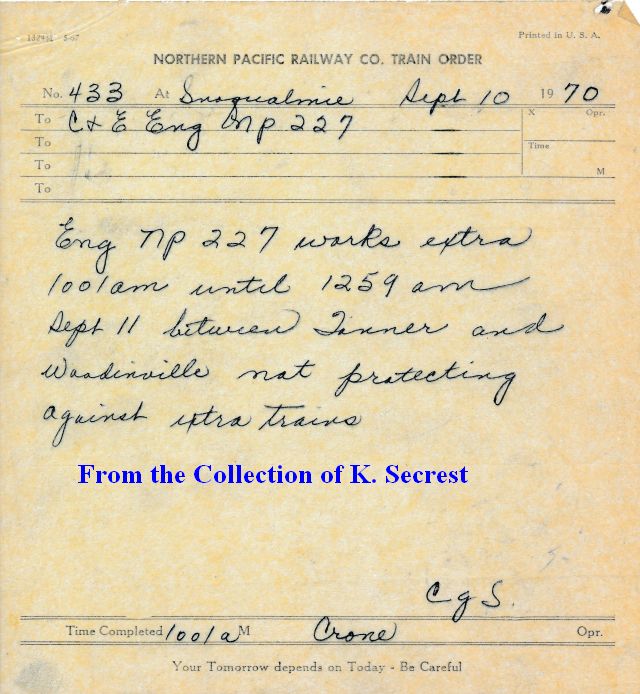 132951 5-67
Printed in U. S. A.
NORTHERN PACIFIC RAILWAY CO. TRAIN ORDER
No. 433 At Snoqualmie Sept 10 1970
To C & E Eng NP 227 X Opr.
To
Time
To M
To
Eng NP 227 works extra
1001am until 1259 am
Sept 11 between Tanner and
Woodinville not protecting
against extra trains
From the Collection of K. Secrest
C g S.
Time Completed 1001a M Crone Opr.
Your Tomorrow depends on Today - Be Careful